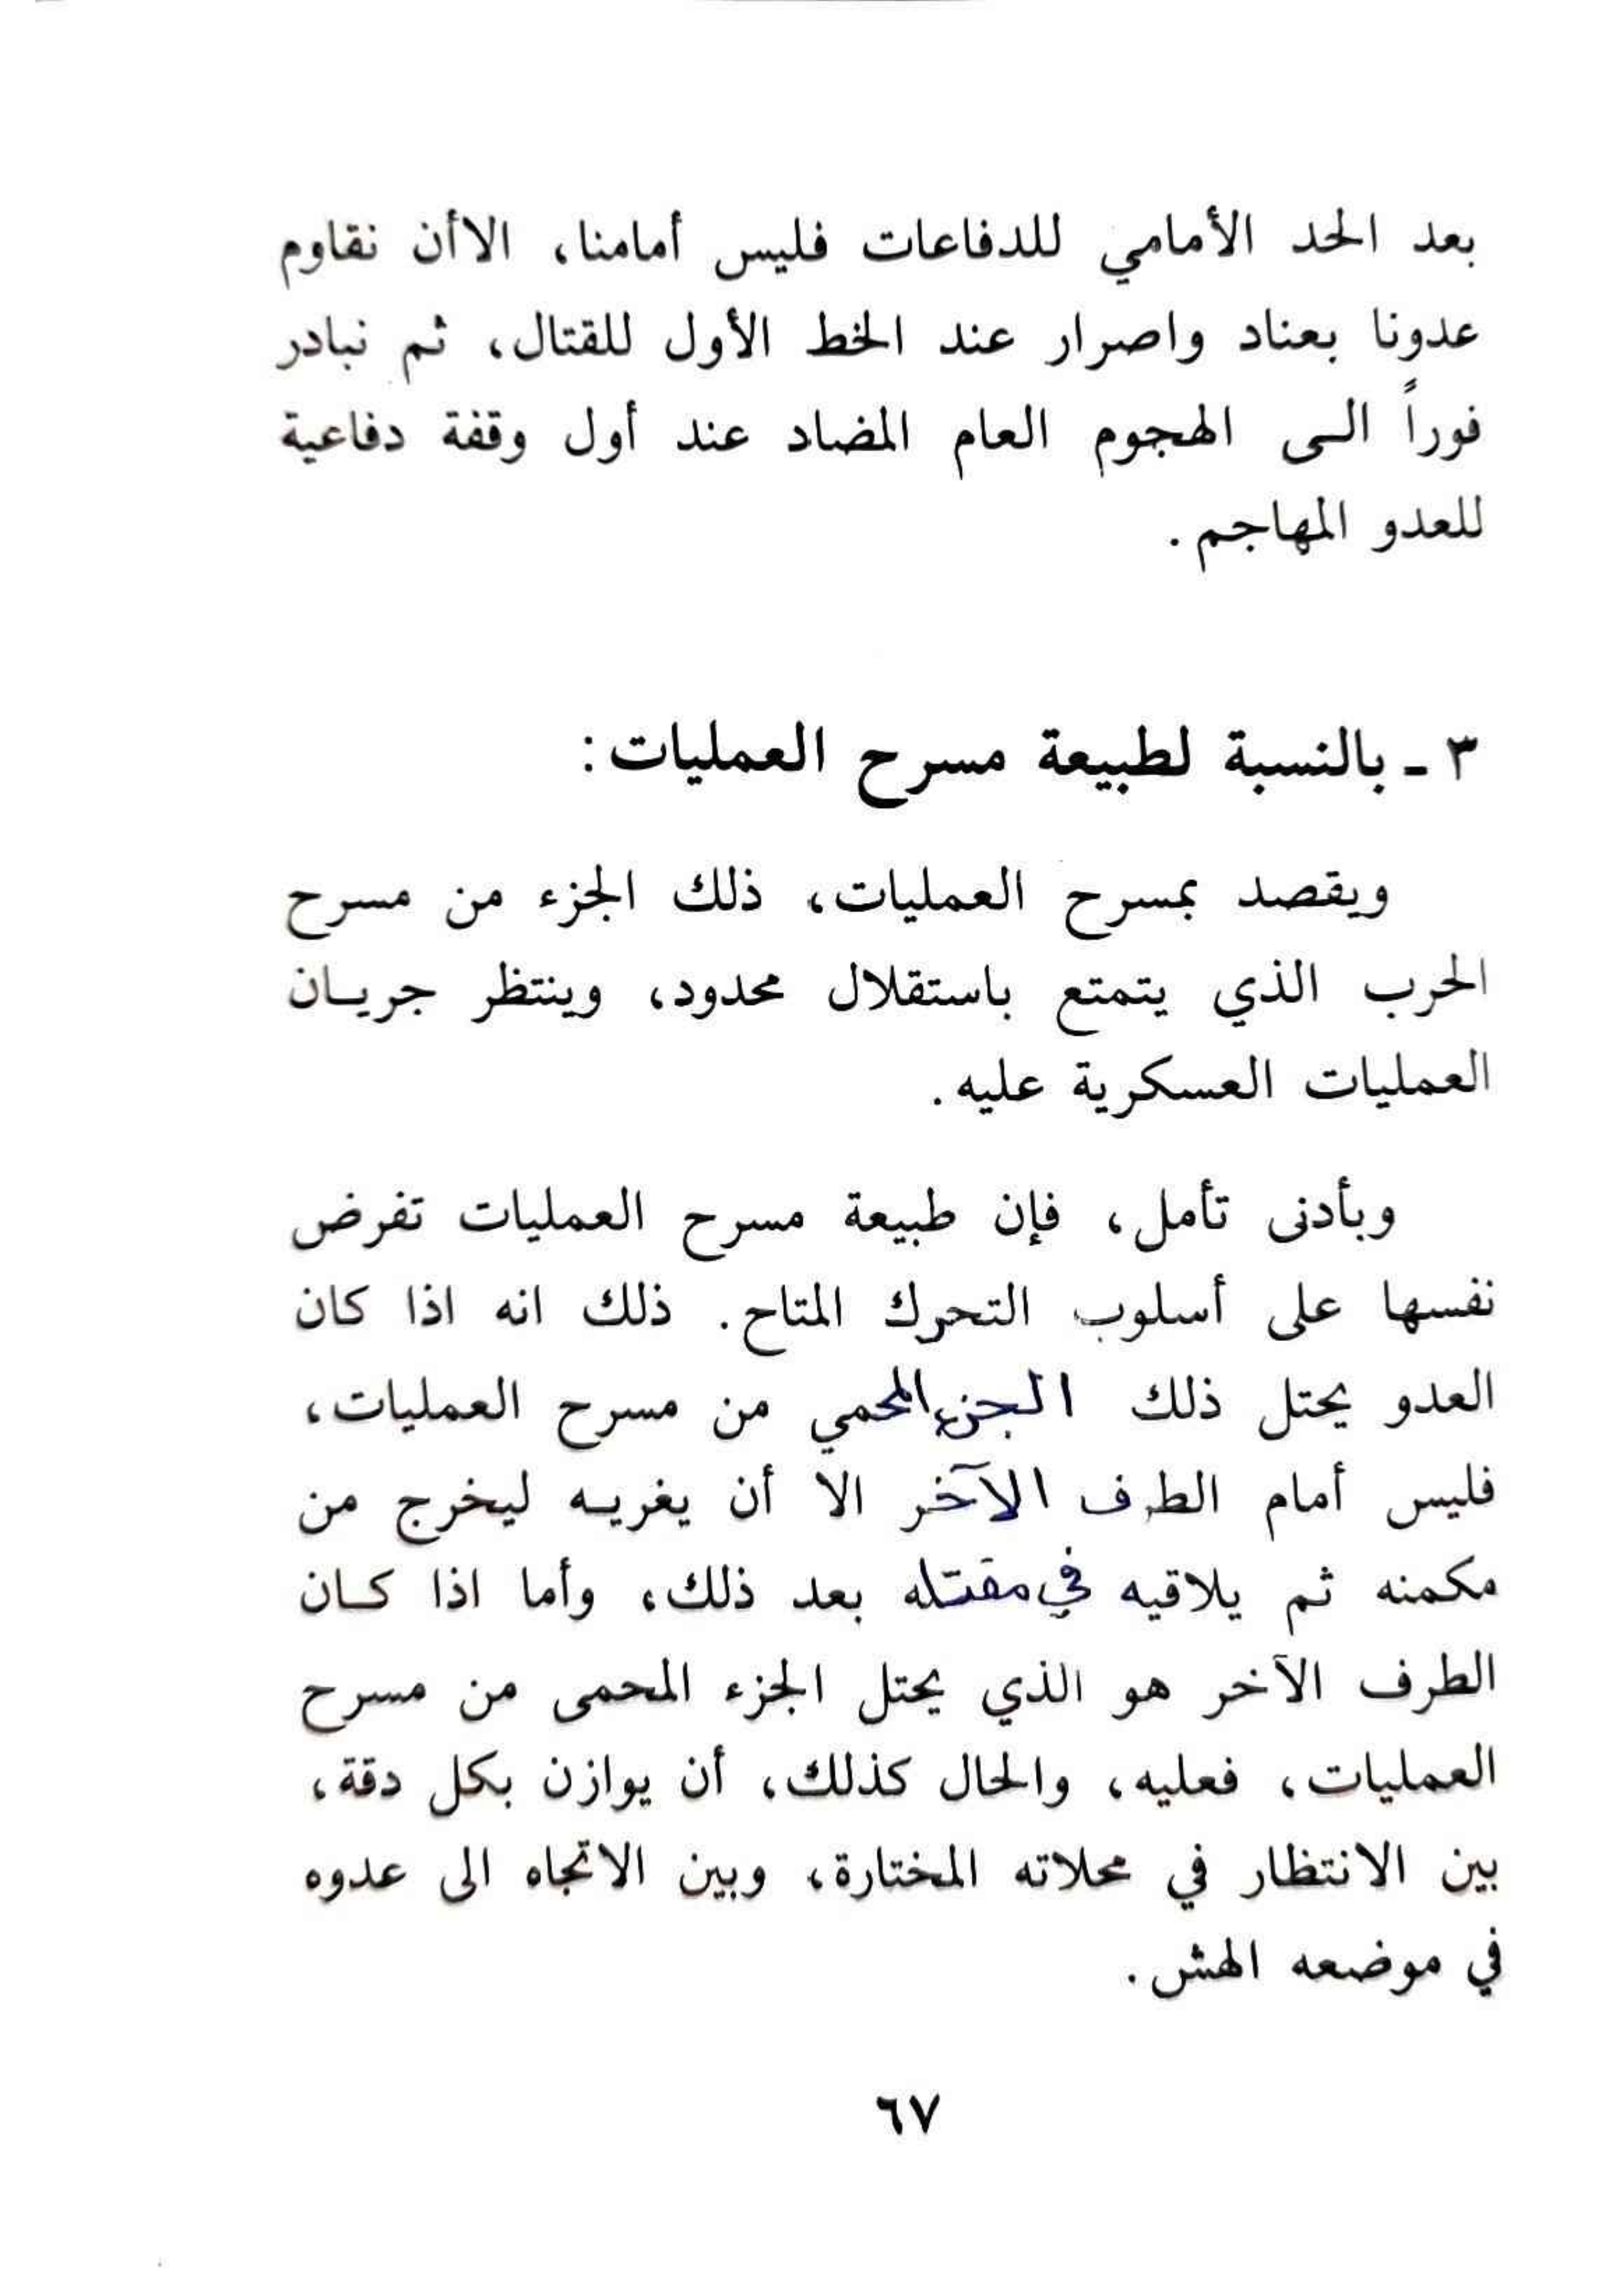 بعد الحد الأمامي للدفاعات فليس أمامنا، الاأن نقاوم
عدونا بعناد واصرار عند الخط الأول للقتال، ثم نبادر
فوراً الى الهجوم العام المضاد عند أول وقفة دفاعية
للعدو المهاجم.
٣ - بالنسبة لطبيعة مسرح العمليات:
ويقصد بمسرح العمليات، ذلك الجزء من مسرح
الحرب الذي يتمتع باستقلال محدود، وينتظر جريان
العمليات العسكرية عليه.
وبأدنى تأمل، فإن طبيعة مسرح العمليات تفرض
نفسها على أسلوب التحرك المتاح. ذلك انه اذا كان
العدو يحتل ذلك الجزء المحمي من مسرح العمليات،
فليس أمام الطرف الآخر الا أن يغريه ليخرج من
مكمنه ثم يلاقيه في مقتله بعد ذلك، وأما اذا كان
الطرف الآخر هو الذي يحتل الجزء المحمى من مسرح
العمليات، فعليه، والحال كذلك، أن يوازن بكل دقة،
بين الانتظار في محلاته المختارة، وبين الاتجاه الى عدوه
في موضعه الهش.
٦٧